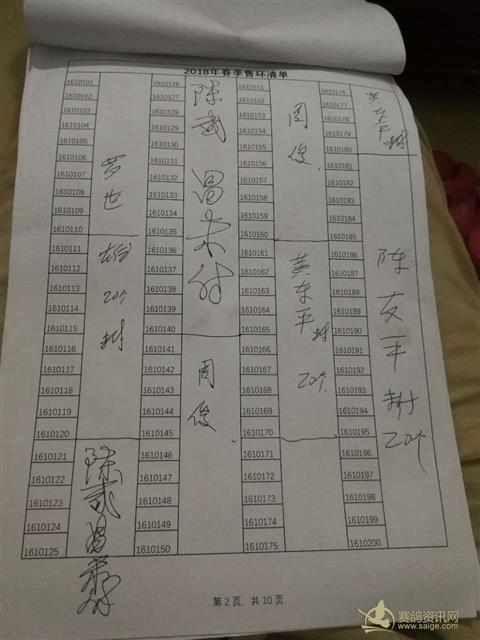 2018年春季售环清单
1610101
1610102
1610103
1610104
1610105
1610106
1610107
1610108
1610109
1610110
1610111
1610112
1610113
1610114
1610115
1610116
1610117
1610118
1610119
1610120
1610121
1610122
1610123
1610124
1610125
罗世雄 20个
陈武昌
1610126
1610127
1610128
1610129
1610130
1610131
1610132
1610133
1610134
1610135
1610136
1610137
1610138
1610139
1610140
1610141
1610142
1610143
1610144
1610145
1610146
1610147
1610148
1610149
1610150
陈武昌未付
周俊
1610151
1610152
1610153
1610154
1610155
1610156
1610157
1610158
1610159
1610160
1610161
1610162
1610163
1610164
1610165
1610166
1610167
1610168
1610169
1610170
1610171
1610172
1610173
1610174
1610175
周俊
黄东平 20个
1610176
1610177
1610178
1610179
1610180
1610181
1610182
1610183
1610184
1610185
1610186
1610187
1610188
1610189
1610190
1610191
1610192
1610193
1610194
1610195
1610196
1610197
1610198
1610199
1610200
陈友平 20个
第 2 页，共 10 页
赛鸽资讯网
www.saige.com